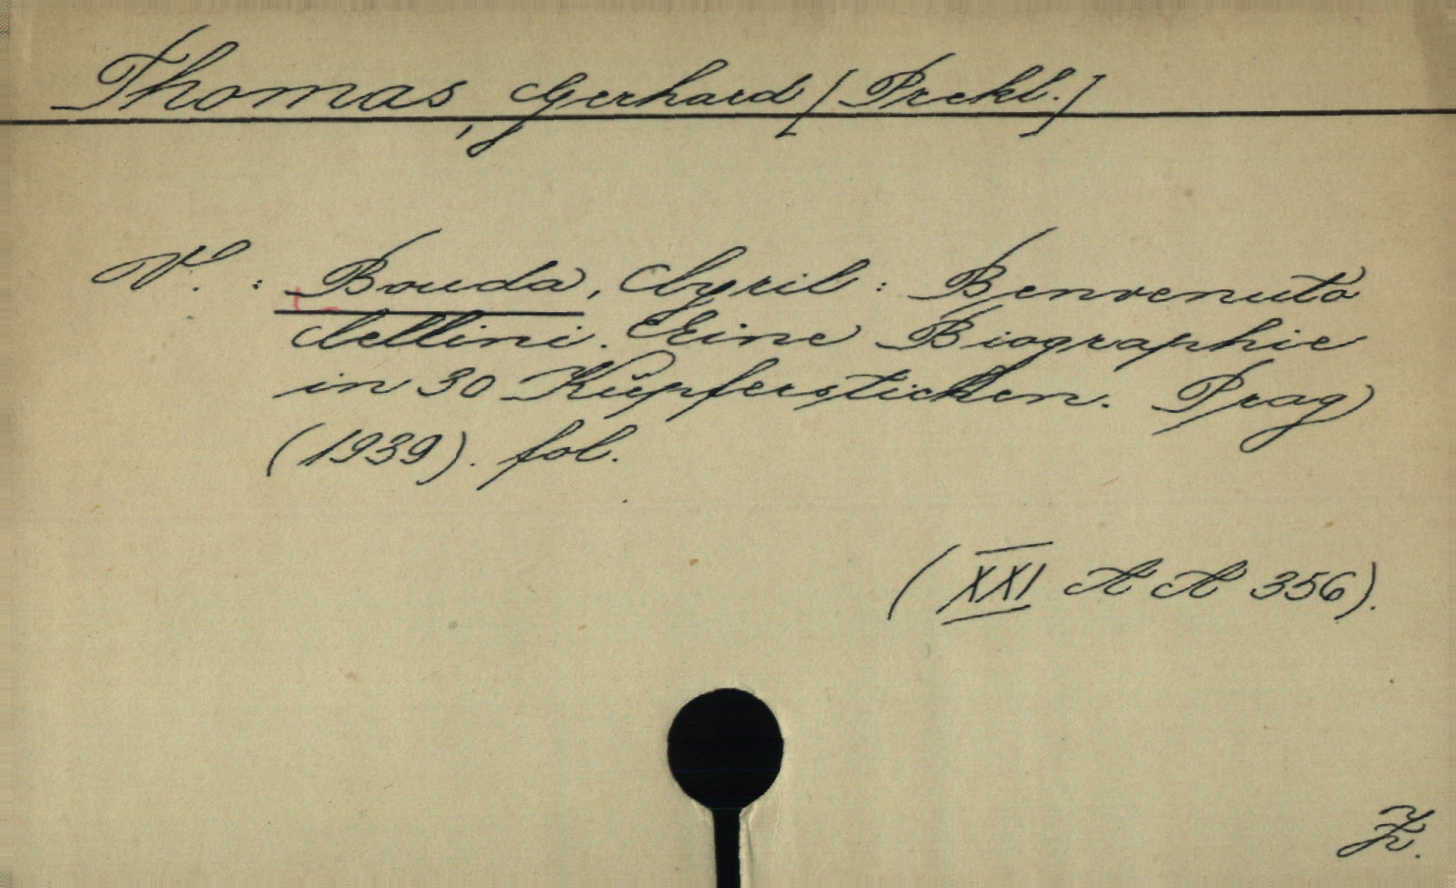 Thomas, Gerhard [Prekl.]
V. : Bouda, Cyril : Benvenuto
Cellini. Eine Biographie
in 30 Kupferstichen. Prag
(1939). fol.
(XXI A A 356).
Ž.